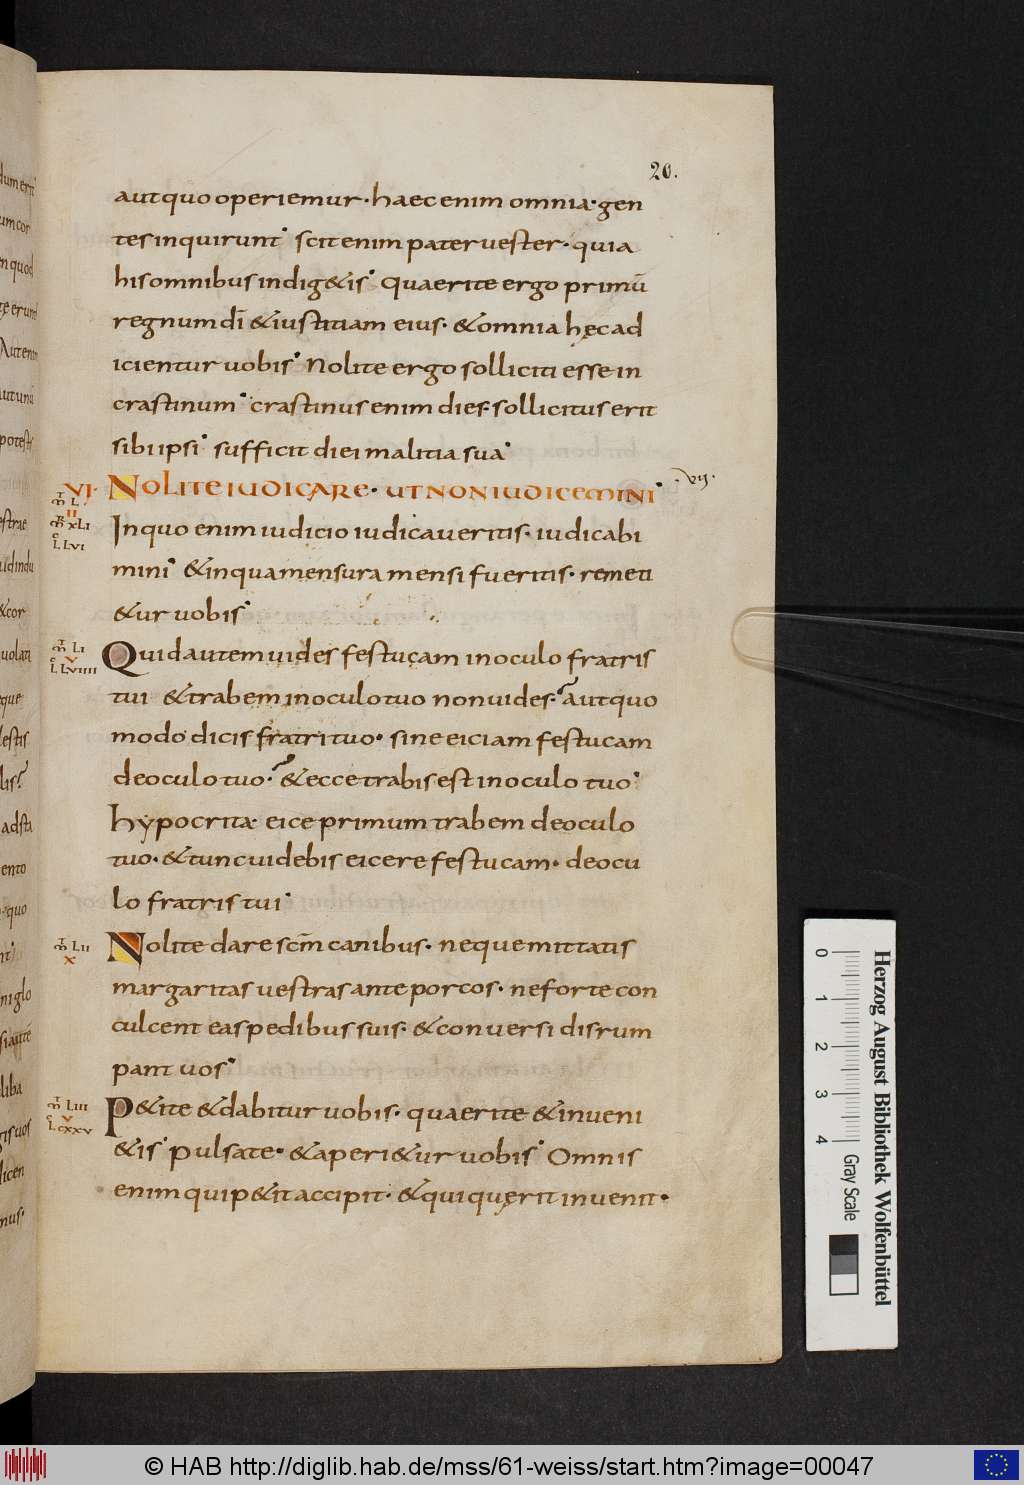 20.
aut quo operiemur· haec enim omnia· gen
tes inquirunt· scit enim pater uester· quia
his omnibus indig&is· quaerite ergo primū
regnum dī &iustitiam eius· &omnia hęc ad
icientur uobis· Nolite ergo solliciti esse in
crastinum· crastinus enim dies· sollicitus erit
sibi ipsi· sufficit diei malitia sua·
VI· NOLITE IUDICARE· UT NON IUDICEMINI· ·vij·
L
II
XLI
LVI
In quo enim iudicio iudicaueritis· iudicabi
mini· &in qua mensura mensi fueritis· remeti
&ur uobis·
LI
V
LVIIII
Quid autem uides festucam in oculo fratris
tui &trabem in oculo tuo non uides· aut quo
modo dicis fratri tuo· sine eiciam festucam
de oculo tuo· &ecce trabis est in oculo tuo·
hypocrita· eice primum trabem de oculo
tuo· &tunc uidebis eicere festucam· de ocu
lo fratris tui·
LII
X
Nolite dare scm̄ canibus· neque mittatis
margaritas uestras ante porcos· ne forte con
culcent eas pedibus suis· &conuersi disrum
pant uos·
LIII
V
CXXV
P&ite &dabitur uobis· quaerite &inueni
&is· pulsate· &aperi&ur uobis· Omnis
enim qui p&it accipit· &qui quęrit inuenit·
Herzog August Bibliothek Wolfenbüttel
0 1 2 3 4 Gray Scale
© HAB http://diglib.hab.de/mss/61-weiss/start.htm?image=00047